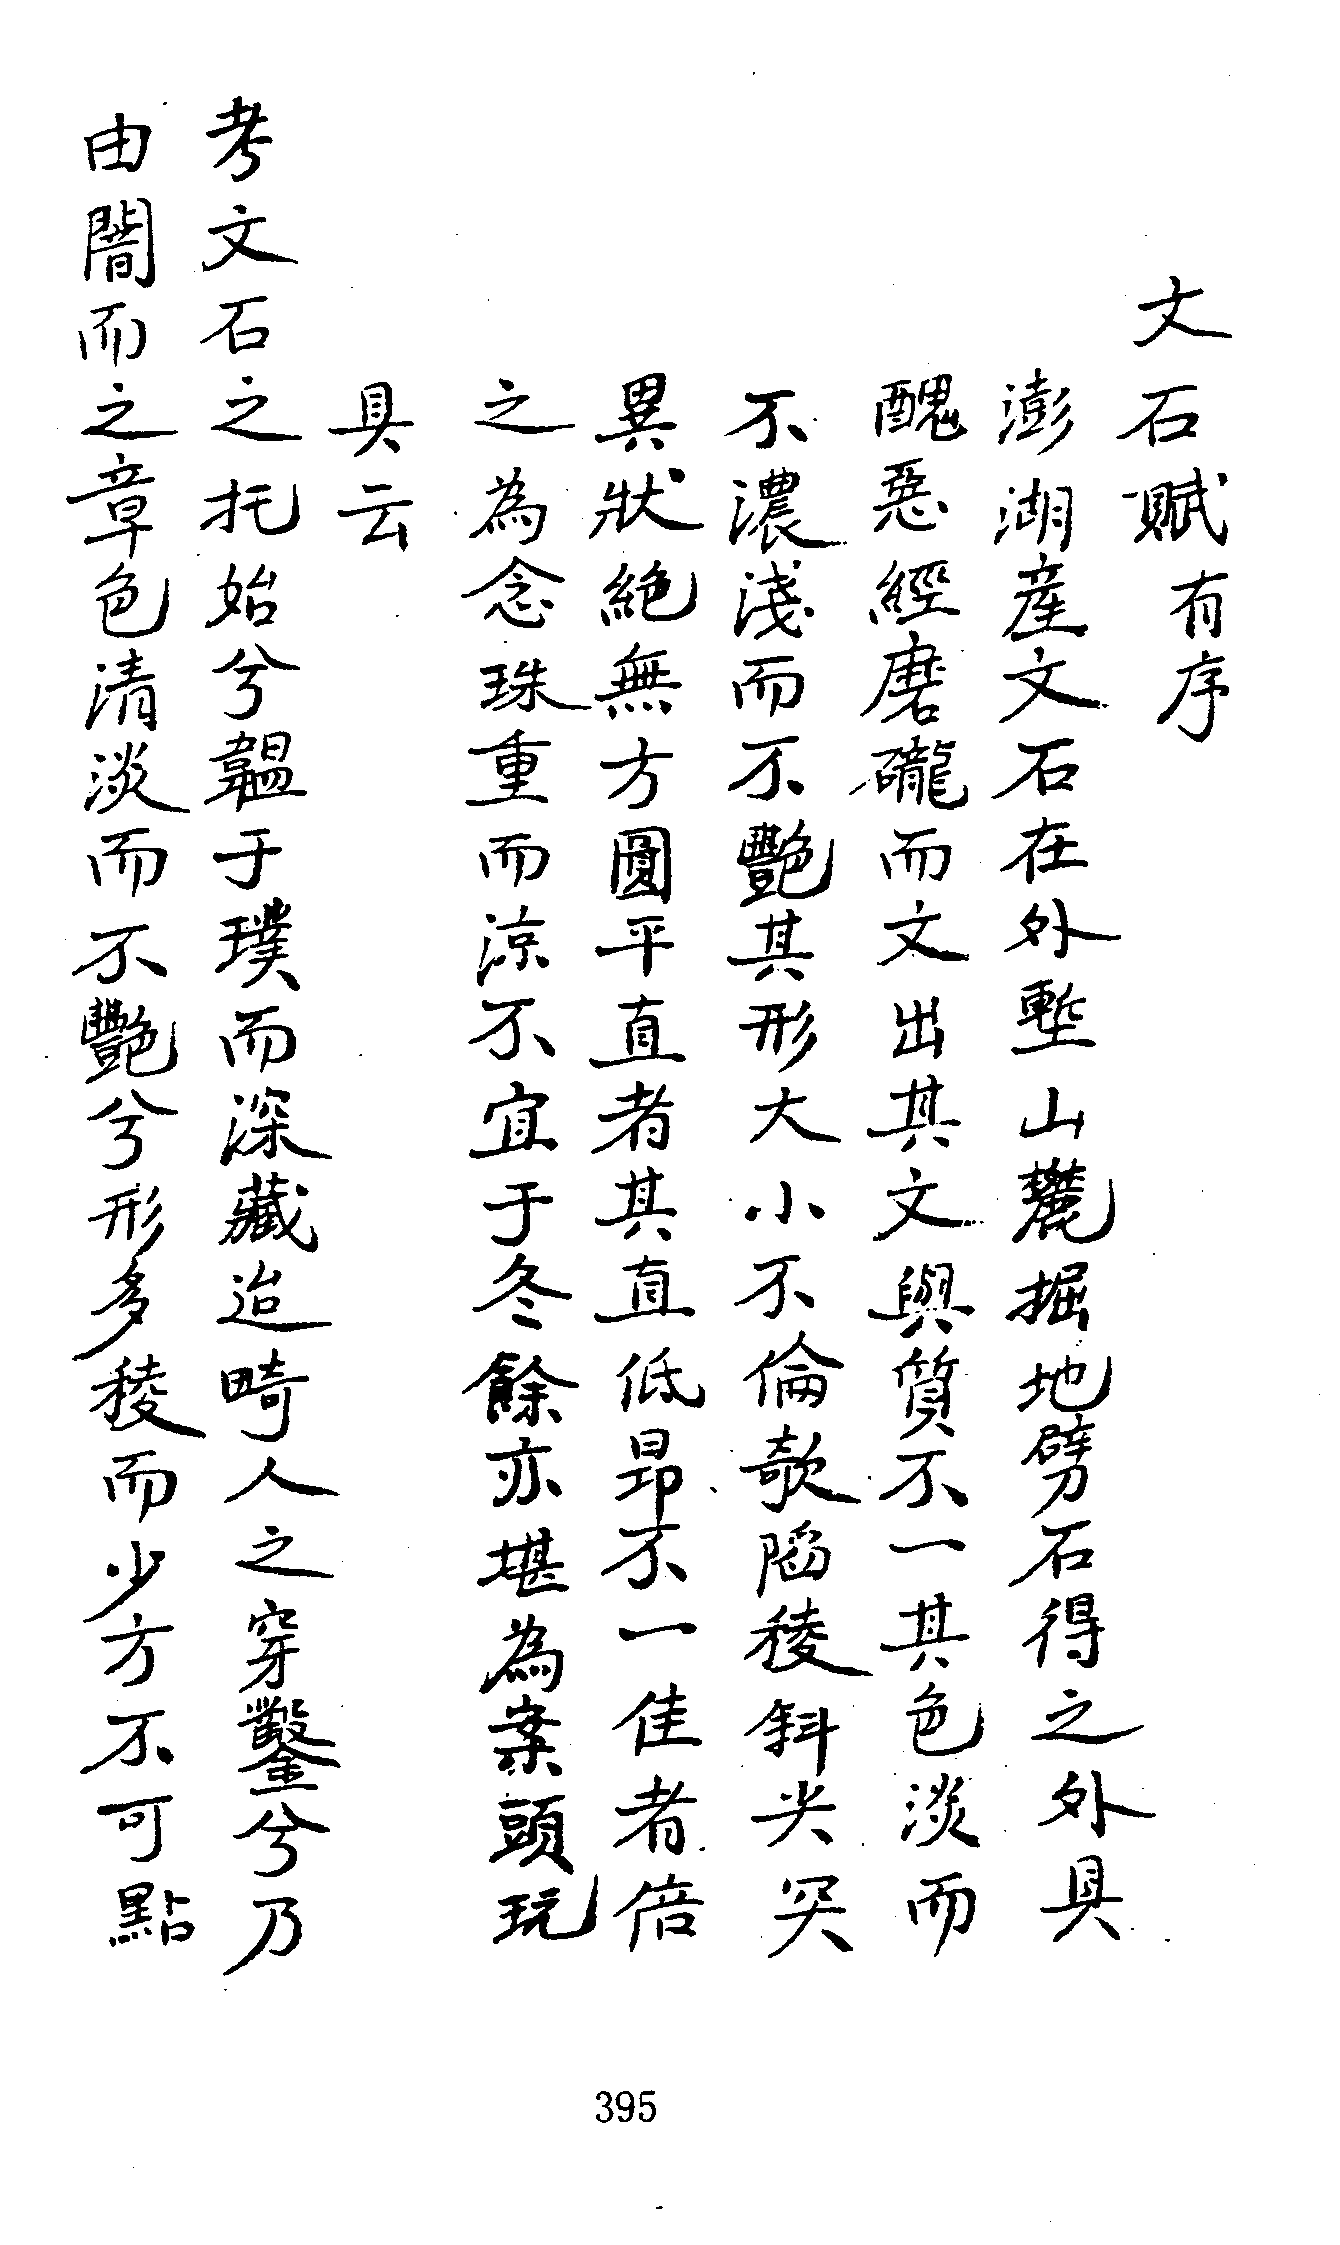 文石賦有序
澎湖產文石在外塹山麓掘地劈石得之外具
醜惡經磨礲而文出其文與質不一其色淡而
不濃淺而不艷其形大小不倫欹陷稜斜尖突
異狀絕無方圓平直者其直低昂不一佳者倍
之為念珠重而涼不宜于冬餘亦堪為案頭玩
具云
考文石之托始兮韞于璞而深藏迨畸人之穿鑿兮乃
由闇而之章色清淡而不艷兮形多稜而少方不可點
395